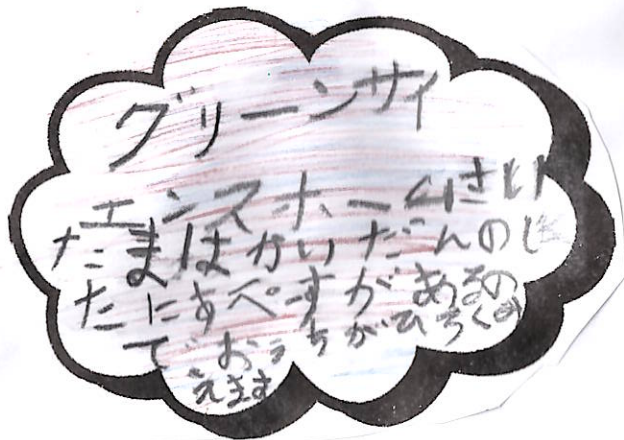 グリーンサイ
エンスホームさい
たまはかいだんのし
たにすぺーすがあるの
でおうちがひろくみ
えます